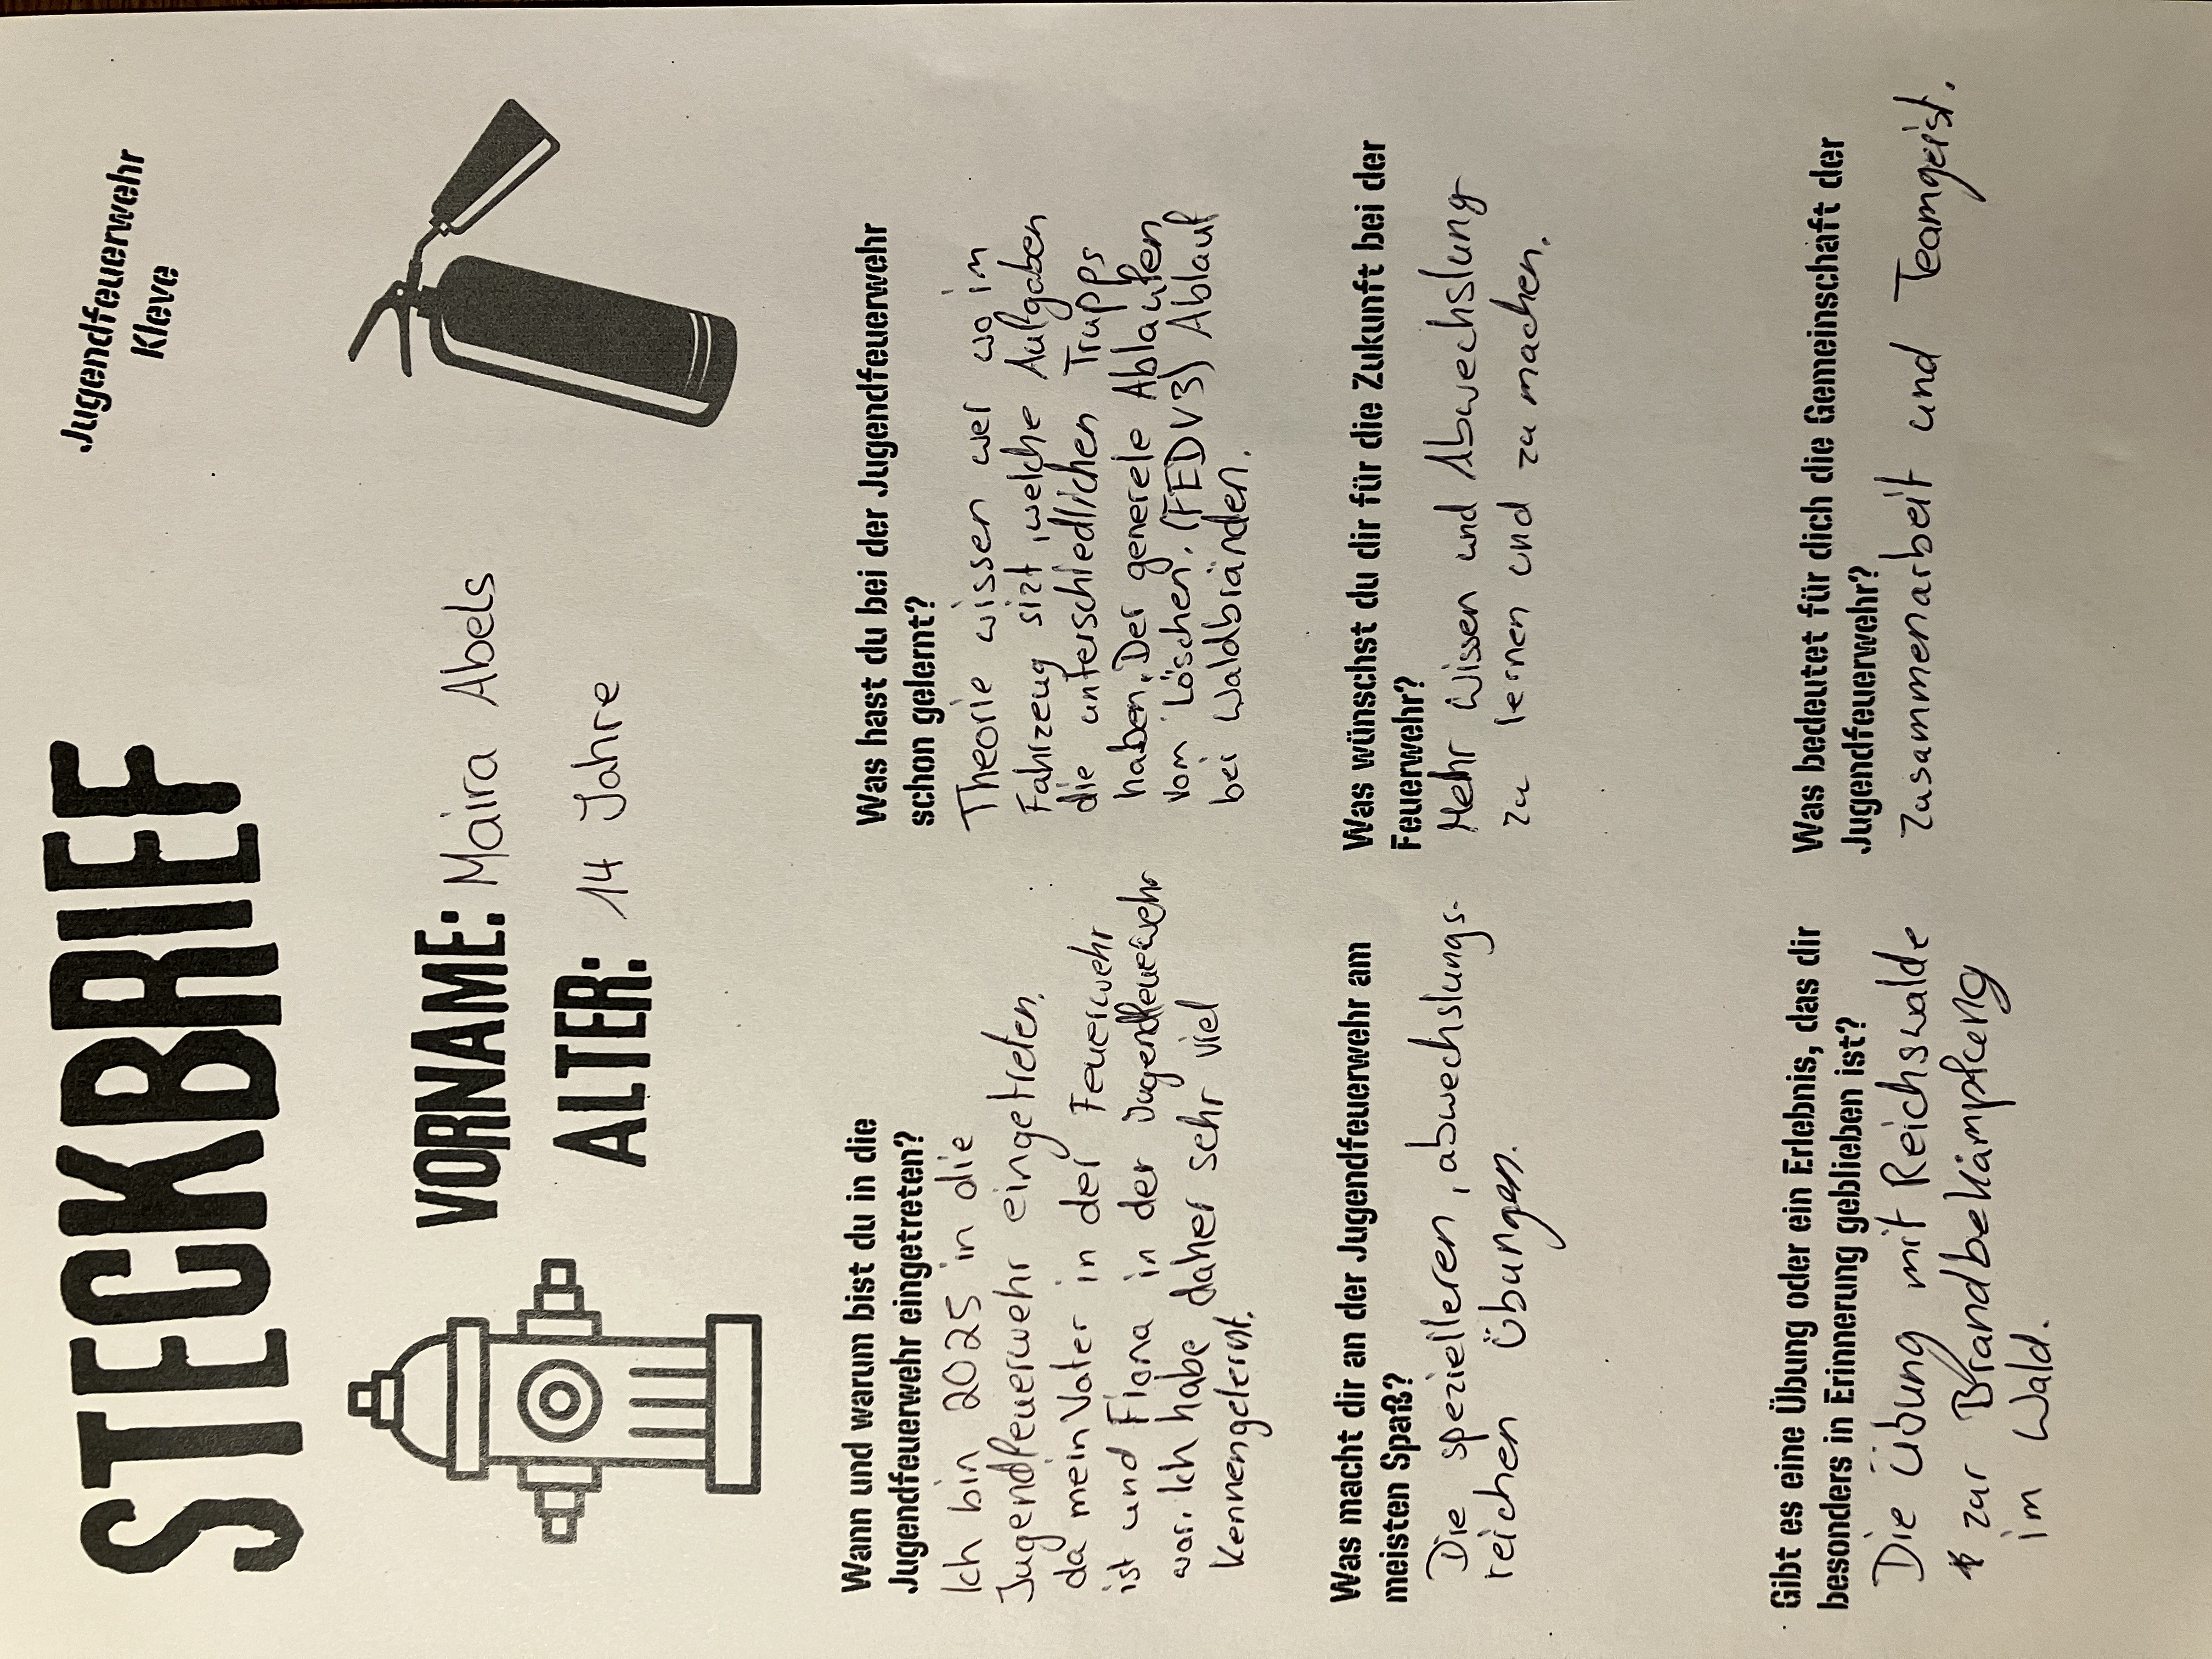 Jugendfeuerwehr
Kleve
STECKBRIEF
VORNAME: Maira Abels
ALTER: 14 Jahre
Wann und warum bist du in die
Jugendfeuerwehr eingetreten?
Ich bin 2025 in die
Jugendfeuerwehr eingetreten,
da mein Vater in der Feuerwehr
ist und Fiona in der Jugendfeuerwehr
war. Ich habe daher sehr viel
kennengelernt.
Was hast du bei der Jugendfeuerwehr
schon gelernt?
Theorie wissen wer wo im
Fahrzeug sizt, welche Aufgaben
die unterschiedlichen Trupps
haben. Der generele Ablaufen
vom Löschen. (FEDV3) Ablauf
bei Waldbränden.
Was macht dir an der Jugendfeuerwehr am
meisten Spaß?
Die spezielleren, abwechslungs-
reichen Übungen.
Was wünschst du dir für die Zukunft bei der
Feuerwehr?
Mehr Wissen und Abwechslung
zu lernen und zu machen.
Gibt es eine Übung oder ein Erlebnis, das dir
besonders in Erinnerung geblieben ist?
Die Übung mit Reichswalde
zur Brandbekämpfung
im Wald.
Was bedeutet für dich die Gemeinschaft der
Jugendfeuerwehr?
Zusammenarbeit und Teamgeist.